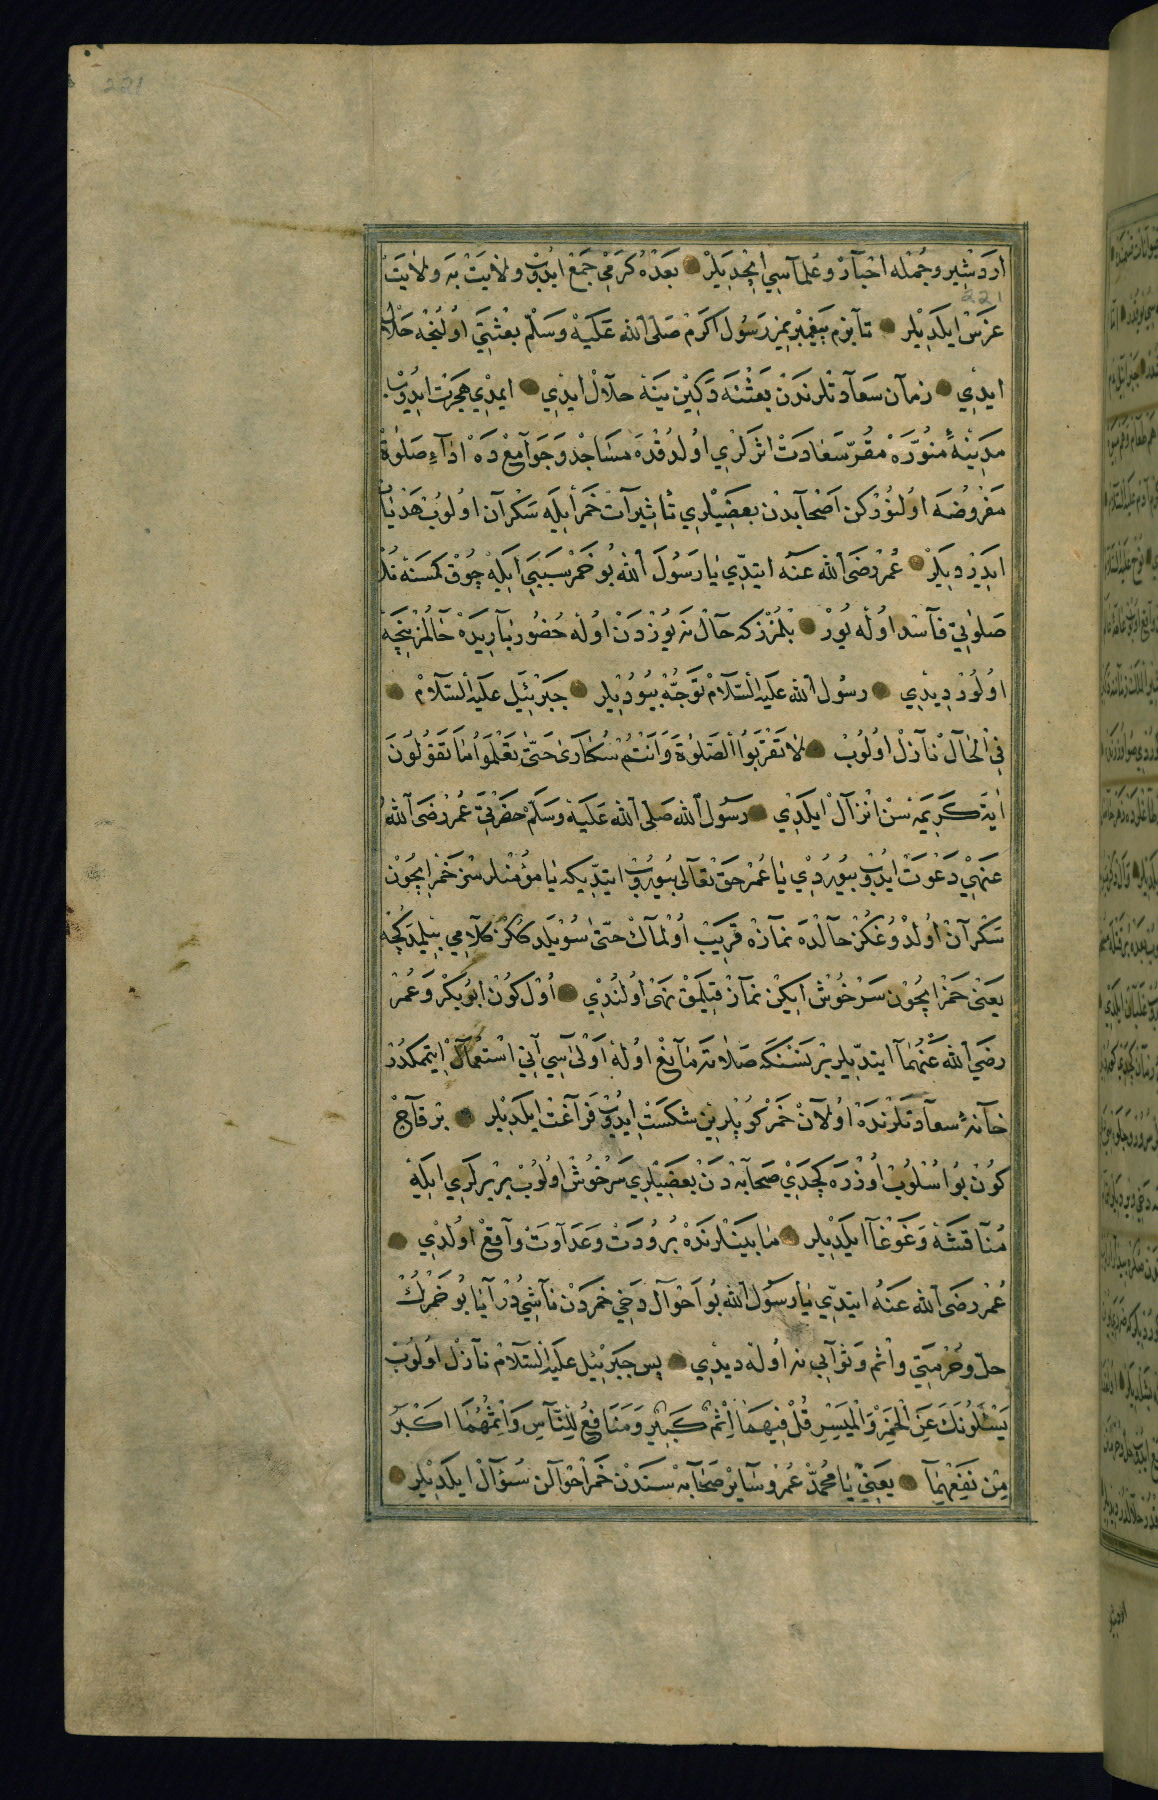 221
اردشير وجمله اخبار وعلماسي ايچديلر بعده كرمي جمع ايدوب ولايت به ولايت
221
غرس ايلديلر تا بزم پيغمبريمز رسول اكرم صلى الله عليه وسلم بعثتي اولنجه حلال
ايدي زمان سعادتلرندن بعثنه دكين ينه حلال ايدي ايمدي هجرت ايدوب
مدينهٔ منوره مقر سعادت اثرلري اولدقده مساجد وجوامع ده اداء صلوة
مفروضه اولنوركن اصحابدن بعضيلري تاثيرات خمر ايله سكران اولوب هذيان
ايدرديلر عمر رضى الله عنه ايتدي يا رسول الله بو خمر سببي ايله چوق كمسنه نك
صلوتي فاسد اوله يور بلمزز كه حال نه يوزدن اوله حضور باريده حالمز نيجه
اولور ديدي رسول الله عليه السلام توجه بيوردیلر جبرئيل عليه السلام
في الحال نازل اولوب لا تقربوا الصلوة وانتم سكارى حتى تعلموا ما تقولون
ايت كريمه سن انزال ايلدي رسول الله صلى الله عليه وسلم حضرتي عمر رضى الله
عنهي دعوت ايدوب بيوردي يا عمر حق تعالى بيوروب ايتديكه يا مؤمنلر سز خمر ايچون
سكران اولدوغكز حالده نمازه قريب اولماك حتى سويلدككز كلامي بيلمينجه
يعني خمر ايچون سرخوش ايكن نماز قيلمق نهى اولندي اول كون ابو بكر وعمر
رضي الله عنهما ايتديلر بر نسنكه صلاته مانع اوله اولىٰسي آني استعمال ايتمكدر
خانهٔ سعادتلرنده اولان خمر كوپلرين شكست ايدوب فراغت ايلديلر بر قاچ
كون بو اسلوب اوزره كچدي صحابه دن بعضيلري سرخوش اولوب بر برلري ايله
مناقشه وغوغا ايلديلر مابينلرنده برودت وعداوت واقع اولدي
عمر رضى الله عنه ايتدي يا رسول الله بو احوال دخي خمردن ناشي در آيا بو خمرك
حل وحرمتي واثم وثوابي نه اوله ديدي پس جبرئيل عليه السلام نازل اولوب
يسئلونك عن الخمر والميسر قل فيهما اثم كبير ومنافع للناس واثمهما اكبر
من نفعهما يعني يا محمد عمر وساير صحابه سندن خمر احوالن سؤال ايلديلر